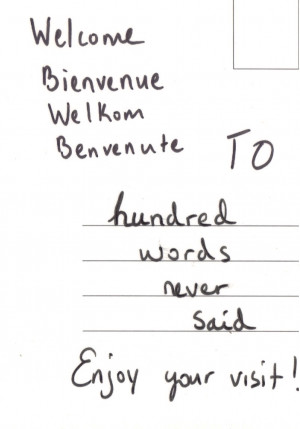 Welcome
Bienvenue
Welkom
Benvenute
TO
hundred
words
never
said
Enjoy your visit!